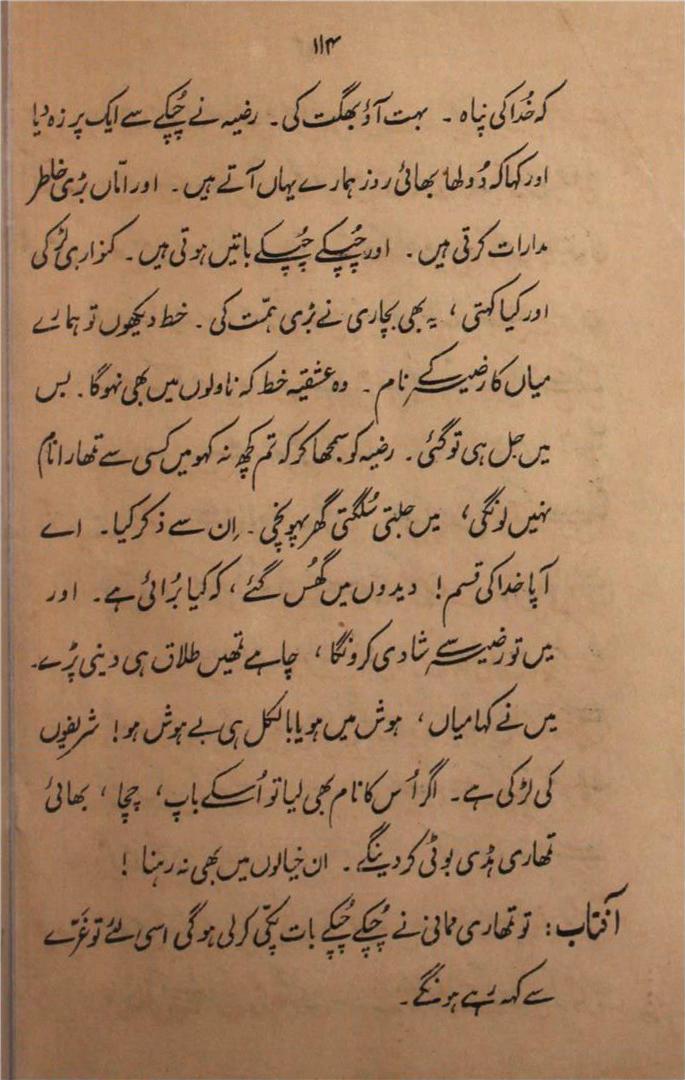 ۱۱۴
کہ خُدا کی پناہ ۔ بہت آؤ بھگت کی ۔ رضیہ نے چُپکے سے ایک پرزہ دیا
اور کہا کہ دُولھا بھائی روز ہمارے یہاں آتے ہیں ۔ اور امّاں بڑی خاطر
مدارات کرتی ہیں ۔ اور چُپکے چُپکے باتیں ہوتی ہیں ۔ کنواری لڑکی
اور کیا کہتی ، یہ بھی بچاری نے بڑی ہمّت کی ۔ خط دیکھوں تو ہمارے
میاں کا رضیہ کے نام ۔ وہ عشقیہ خط کہ ناولوں میں بھی نہوگا ۔ بس
میں جل ہی تو گئی ۔ رضیہ کو سمجھا کر کہ تم کچھ نہ کہو میں کسی سے تمھارا نام
نہیں لونگی ، میں جلتی سُلگتی گھر پہونچی ۔ اِن سے ذکر کیا ۔ اے
آپا خدا کی قسم ! دیدوں میں گھُس گئے ، کہ کیا بُرائی ہے ۔ اور
میں تو رضیہ سے شادی کرونگا ، چاہے تمھیں طلاق ہی دینی پڑے ۔
میں نے کہا میاں ، ہوش میں ہو یا بالکل ہی بے ہوش ہو ! شریفوں
کی لڑکی ہے ۔ اگر اُس کا نام بھی لیا تو اُسکے باپ ، چچا ، بھائی
تمھاری ہڈی بوٹی کر دینگے ۔ ان خیالوں میں بھی نہ رہنا !
آفتاب : تو تمھاری ممانی نے چُپکے چُپکے بات پکّی کرلی ہوگی اسی لئے تو غرّے
سے کہہ رہے ہونگے ۔